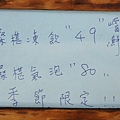 嚐鮮
凍飲 "49"
氣泡 "80"
季節限定!!!